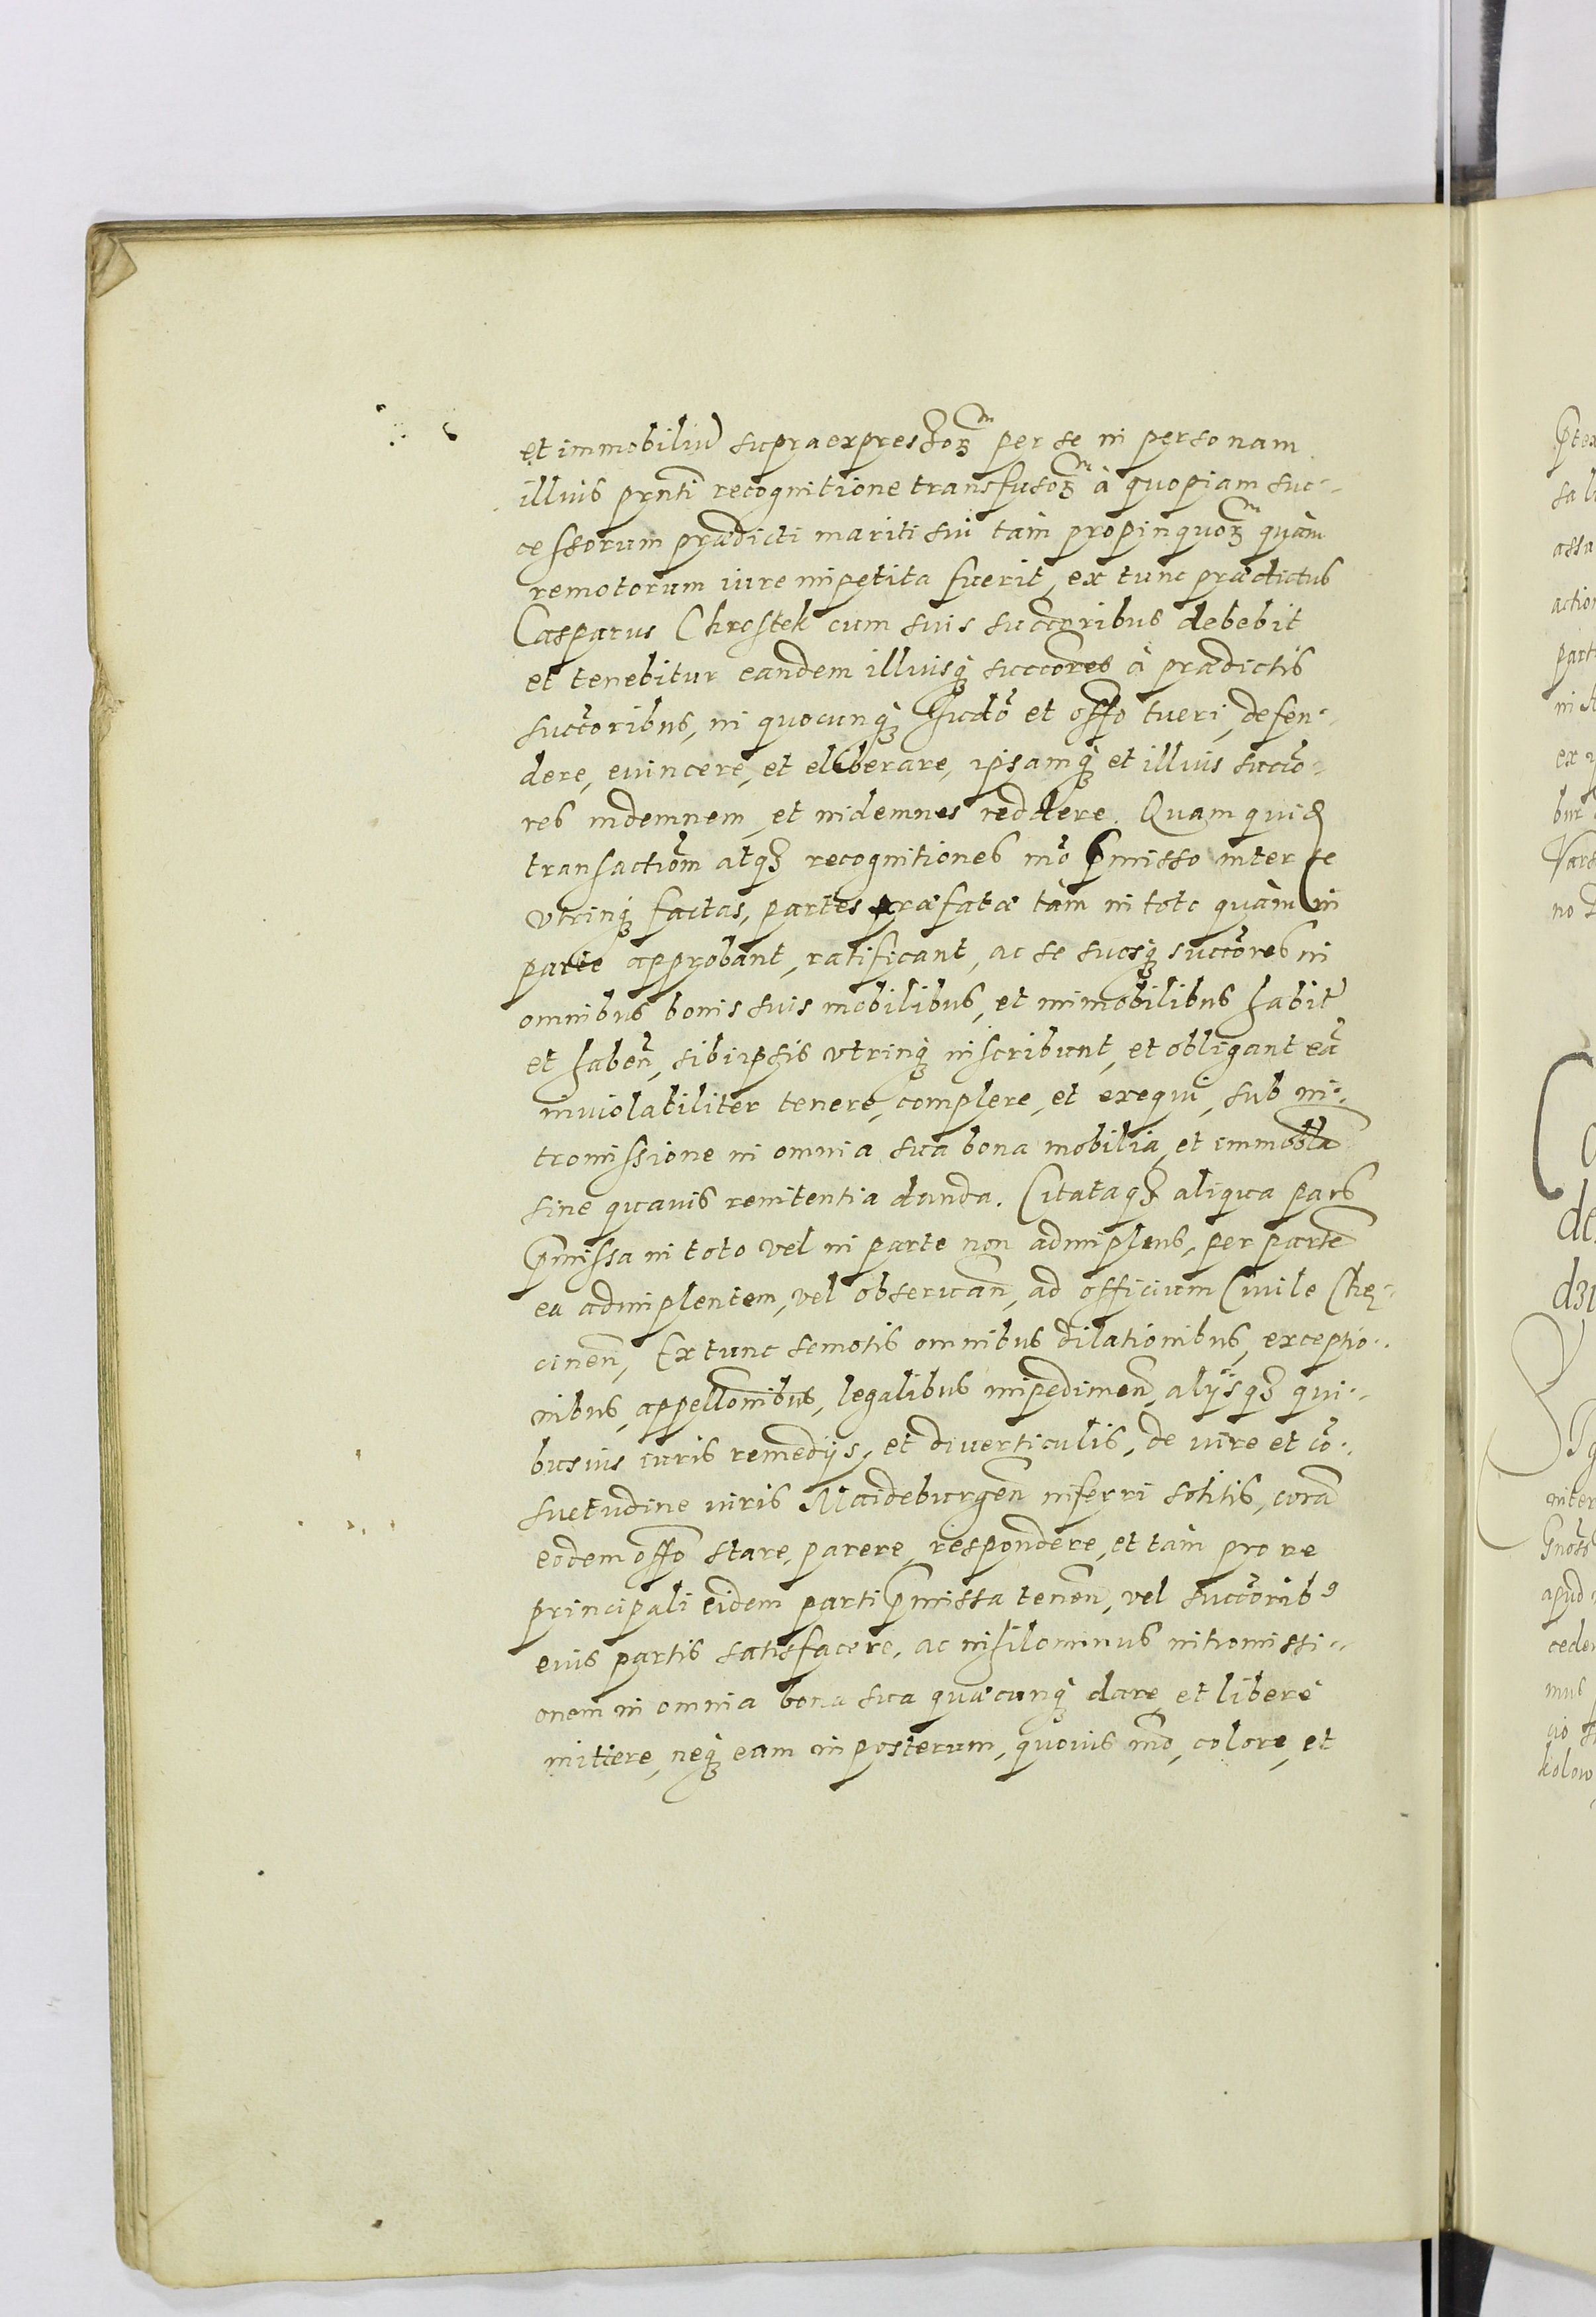 et immobiliũ supraexpressoꝝ per se in personam
illius pr̃nti recognitione transfusoꝝ à quopiam suc-
cessorum prædicti mariti sui tàm propinquoꝝ quàm
remotorum iure impetita fuerit, ex tunc prædictus
Casparus Chrostek cum suis succ̃oribus debebit
et tenebitur eandem illiusq́ꝫ succc̃ores à prædictis
succ̃oribus, in quocunq́ꝫ Iudõ et offõ tueri, defen-
dere, euincere, et eliberare, ipsamq́ꝫ et illius succõ-
res indemnem, et indemnes reddere. Quam quid̃
transactiõm atqꝫ recognitiones mõ p̃misso inter se
vtrinq́ꝫ factas, partes præfatæ tàm in toto quàm in
parte approbant, ratificant, ac se suosq́ꝫ succ̃ores in
omnibus bonis suis mobilibus, et immobilibus habit̃
et haben̄, sibiipsis vtrinq́ꝫ inscribunt, et obligant eã
inuiolabiliter tenere, complere, et exequi, sub in-
tromissione in omnia sua bona mobilia, et immobl̃a
sine quauis renitentia danda. Citataqꝫ aliqua pars
p̃missa in toto vel in parte non adimplens, per partẽ
ea adimplentem, vel obseruan̄, ad officium Ciuile Chę-
cinen̄, Extunc semotis omnibus dilationibus, exceptio-
nibus, appellõnibus, legalibus impedimen̄, alijsqꝫ qui-
busuis iuris remedijs, et diuerticulis, de iure et cõ-
suetudine iuris Maideburgen̄ inferri solitis, corã
eodem offõ stare, parere, respondere, et tàm pro re
principali eidem parti p̃missa tenen̄, vel succ̃orib9
eius partis satisfacere, ac nihilominus intromissi-
onem in omnia bona sua quæcunq́ꝫ dare, et liberè
mittere, neq́ꝫ eam in posterum, quouis mõ, colore, et